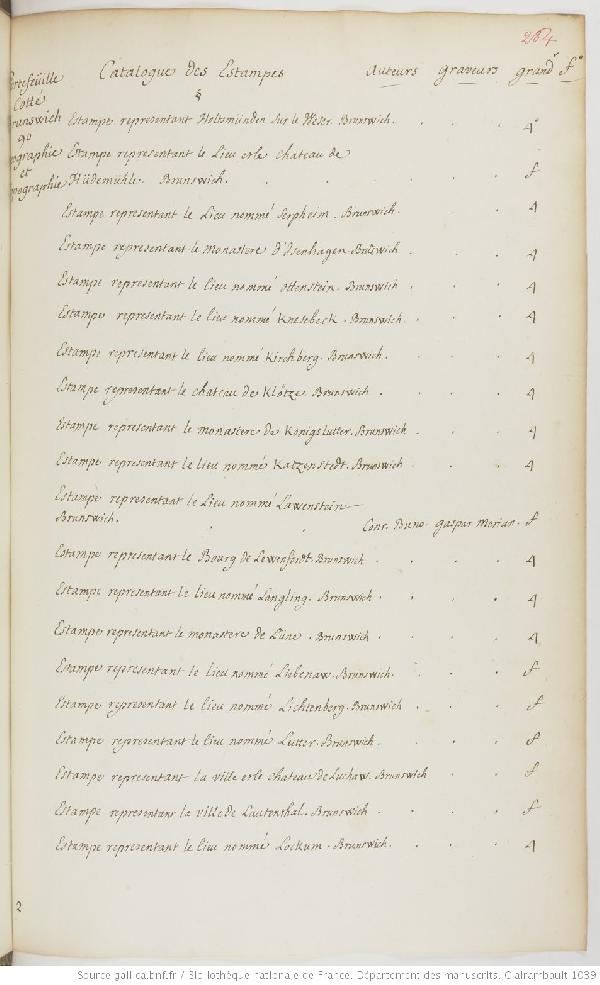 264
Catalogue des Estampes Auteurs graveurs grandr fo
Portefeuille
Cotté
Brunswich
90
Geographie
et
Topographie
Estampe representant Holtsmünden sur le Weser. Brunswich. 4o
Estampe representant le Lieu et le chateau de
Hüdemühle. Brunswich. f
Estampe representant le Lieu nommé Jerpheim. Brunswich. 4
Estampe representant le monastere d'Isenhagen. Brunswich 4
Estampe representant le lieu nommé ottenstein. Brunswich 4
Estampe representant le lieu nommé Knesebeck. Brunswich. 4
Estampe representant le lieu nommé Kirchberg. Brunswich. 4
Estampe representant le chateau de Klötze. Brunswich 4
Estampe representant le monastere de Königslutter. Brunswich 4
Estampe representant le lieu nommé Katzenstedt. Brunswich 4
Estampe representant le Lieu nommé Lawenstein
Brunswich. Conr. Buno gaspar Merian. f
Estampe representant le Bourg de Lewenfördt. Brunswich 4
Estampe representant le lieu nommé Langling. Brunswich. 4
Estampe representant le monastere de Lüne. Brunswich 4
Estampe representant le lieu nommé Liebenaw. Brunswich. f
Estampe representant le lieu nommé Lichtenberg. Brunswich f
Estampe representant le lieu nommé Lutter. Brunswich. f
Estampe representant la ville et le chateau de Luchaw. Brunswich f
Estampe representant la ville de Lautenthal. Brunswich f
Estampe representant le lieu nommé Lockum. Brunswich. 4
2
Source gallica.bnf.fr / Bibliothèque nationale de France. Département des manuscrits. Clairambault 1039